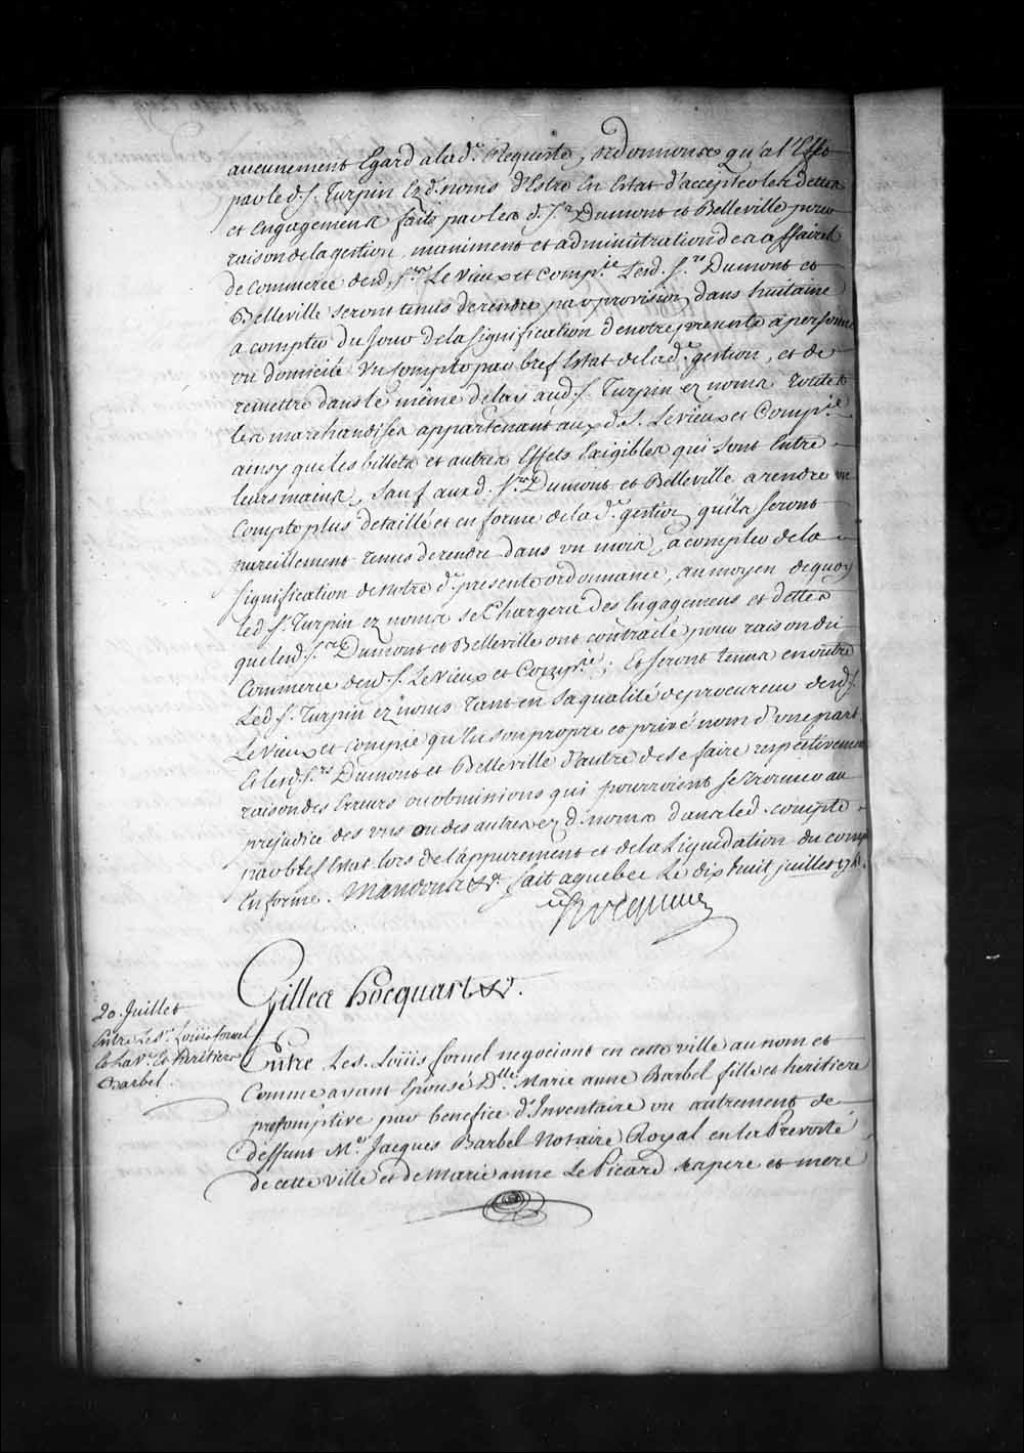 aucunement Egard a lad.e Requeste, ordonnons qu'a l'Effet
par led. S. Turpin Ez d. noms d'Estre En Estat d'accepter les dettes
et Engagemens faits par les d. Srs Dumont et Belleville pour
raison de la gestion, maniment et administration des affaires
de commerce desd. Srs Le Vieux et Comp.ie Lesd. S.rs Dumont et
Belleville seront tenus de rendre par provision, dans huitaine
a compter du Jour de la signification de notre presente a personne
ou domicile un compte par bref Estat de lad.e gestion, et de
remettre dans le même delais aud. S. Turpin ez noms toutes
les marchandises appartenant aux d. S. Le Vieux et Comp.ie
ainsy que les billets et autres Effets Exigibles qui sont Entre
leurs mains, Sauf aux d. Srs Dumont et Belleville a rendre un
Compte plus detaillé et en forme de la d.e gestion qu'ils seront
pareillement tenus de rendre dans un mois, a compter de la
signification de notre d.e presente ordonnance, au moyen de quoy
led. Sr. Turpin ez noms se Chargera des Engagemens et dettes
que lesd. S.rs Dumont et Belleville ont contracté pour raison du
Commerce desd. S. Le Vieux et Comp.ie; Et seront tenus en outre
Led. Sr. Turpin ez noms tant en sa qualité de procureur desd. S.
Le Vieux et Compie qu'En son propre et privé nom d'une part
Et lesd. S.rs Dumont et Belleville d'autre de se faire respectivement
raison des Erreurs ou obmissions qui pourroient se trouver au
prejudice des uns ou des autres ez d. noms dans led. compte
par bref Estat lors de l'appurement et de la Liquidation du compte
En forme. Mandons &a. fait a quebec Le dix huit juillet
Hocquart
Gilles hocquart &a.
20. Juillet
Entre Le Sr. Loüis fornel
et La Ve. et heritiers
Barbel.
Entre Le s. Loüis fornel negociant en cette ville au nom et
Comme ayant Epousé D.lle Marie anne Barbel fille et heritiere
presomptive par benefice d'Inventaire ou autrement de
deffunt M.e Jacques Barbel Notaire Royal en la Prevosté
de cette ville et de Marie anne Le Picard ses pere et mere